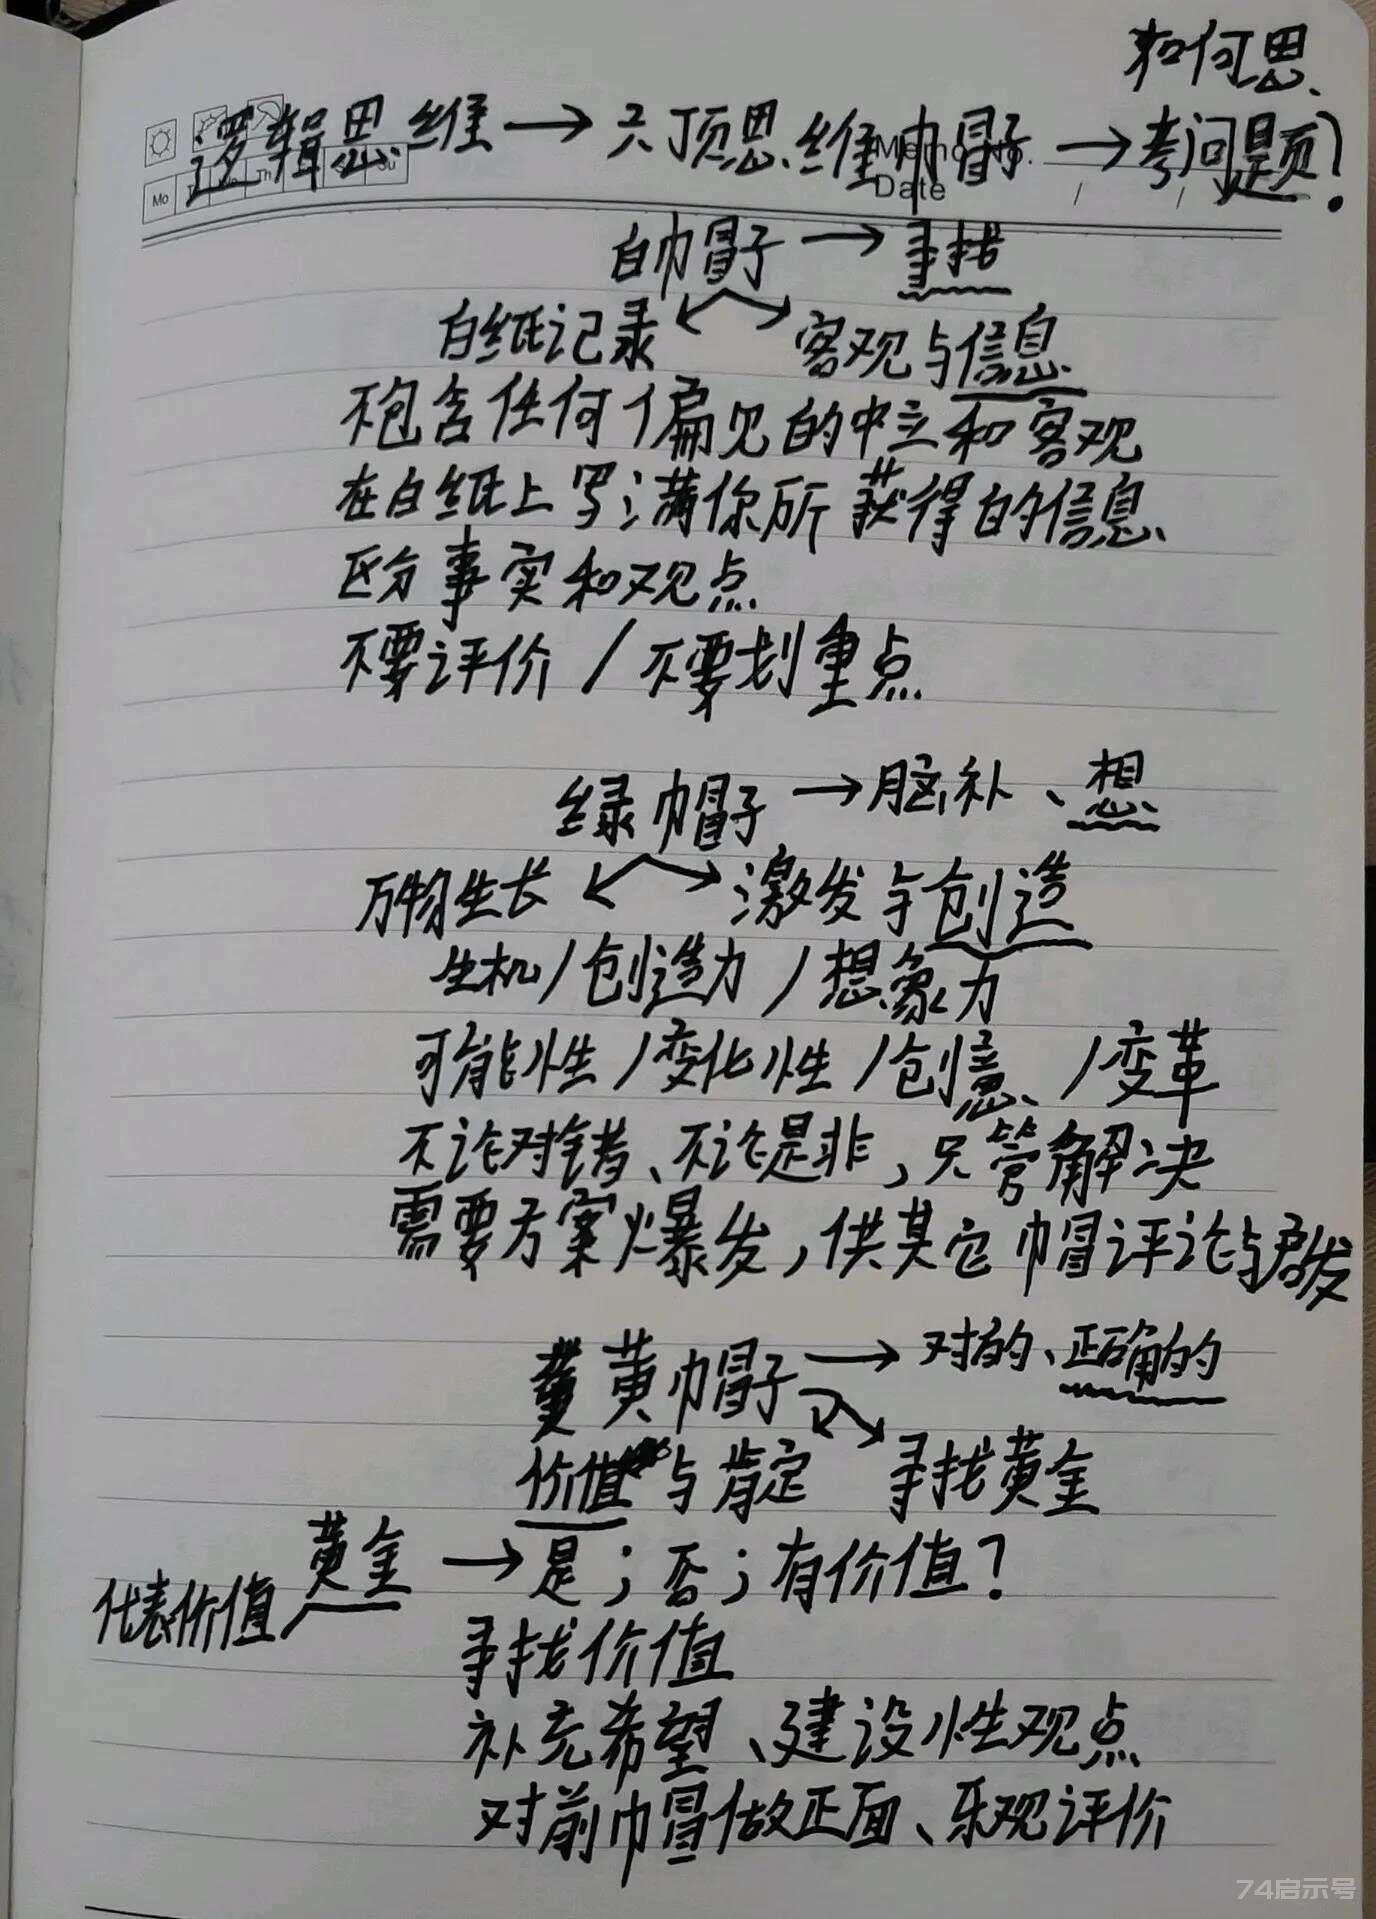 和何思
逻辑思维→六顶思维帽子→考问题?
Mo
Date
白帽子→寻找
白纸记录 客观与信息
不包含任何偏见的中立和客观
在白纸上写满你所获得的信息
区分事实和观点
不要评价/不要划重点
绿帽子→脑补、想
万物生长 激发与创造
生机/创造力/想象力
可能性/变化性/创意/变革
不论对错、不论是非,只管解决
需要方案爆发,供其它帽评论与启发
黄帽子→对的、正确的
价值与肯定 寻找黄金
代表价值 黄金→是;否;有价值?
寻找价值
补充希望、建设性观点
对前帽做正面、乐观评价
74启示号